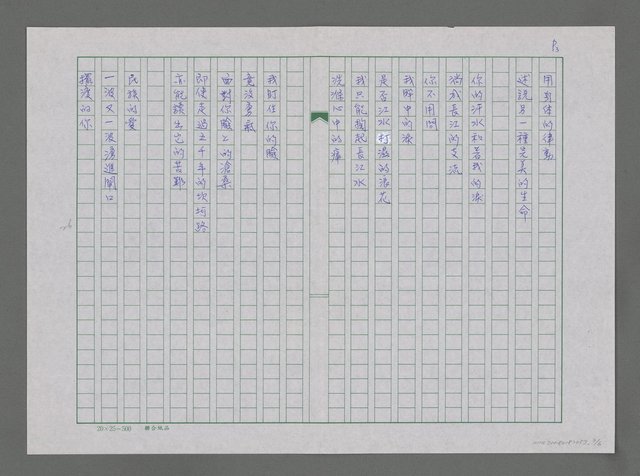 P3
用身体的律動
述説另一種完美的生命
你的汗水和苦我的淚
滴成長江的支流
你不用問
我眸中的淚
是否江水打濕的浪花
我只能掬起長江水
洗滌心中的痛
我盯住你的臉
竟沒勇氣
面對你臉上的滄桑
即使走過五千年的坎坷路
亦能讀出它的苦難
民族的愛
一波又一波湧進閘口
擺渡的你
20×25=500 聯合紙品